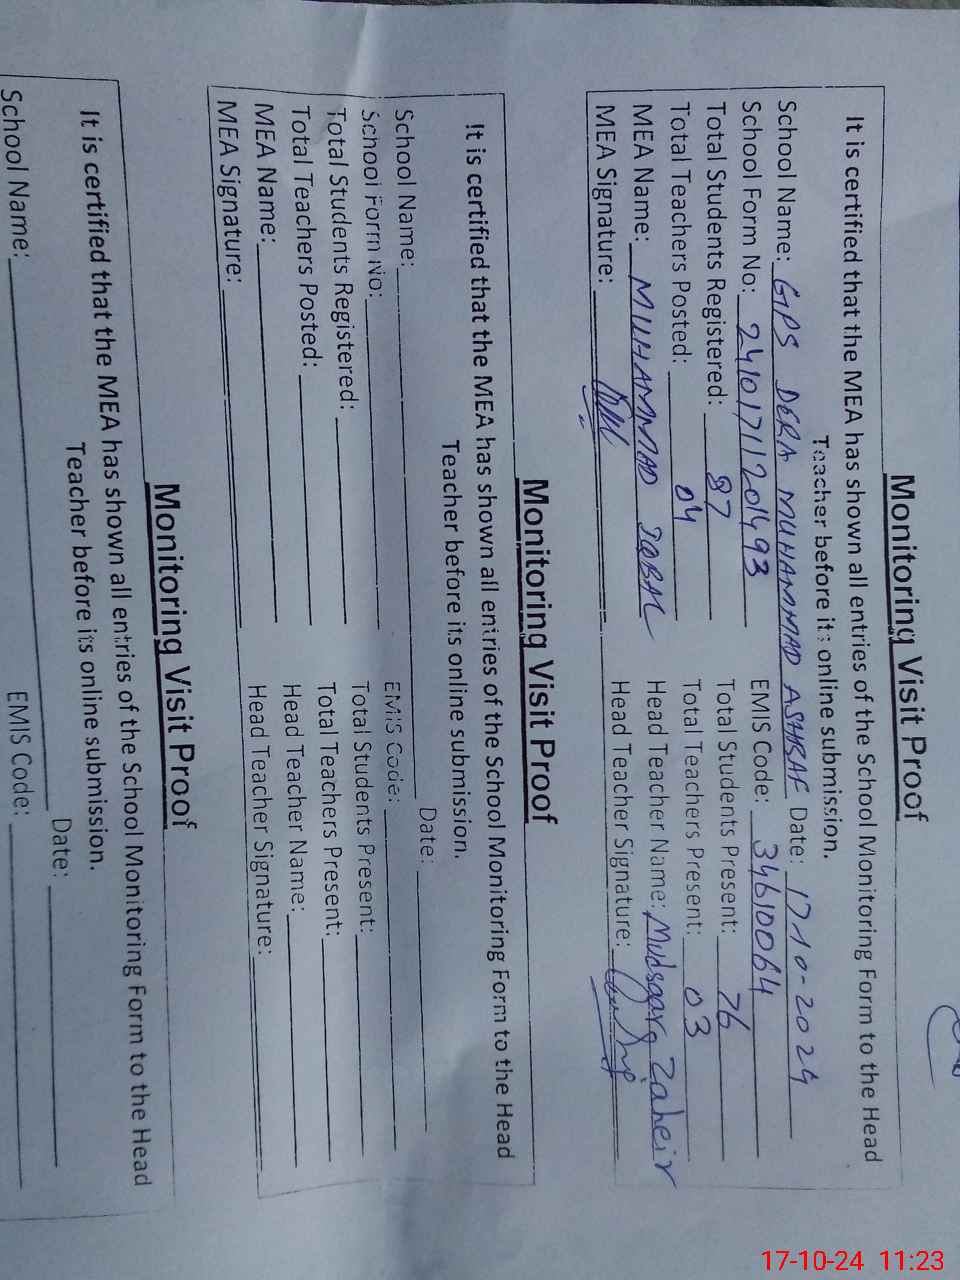 Monitoring Visit Proof
It is certified that the MEA has shown all entries of the School Monitoring Form to the Head
Teacher before its online submission.
School Name: GPS DERA MUHAMMAD ASHRAF Date: 17-10-2024
School Form No: 2410171201493 EMIS Code: 34610064
Total Students Registered: 87 Total Students Present: 76
Total Teachers Posted: 04 Total Teachers Present: 03
MEA Name: MUHAMMAD IQBAL Head Teacher Name: Zaheir
MEA Signature: Head Teacher Signature:
Monitoring Visit Proof
It is certified that the MEA has shown all entries of the School Monitoring Form to the Head
Teacher before its online submission.
School Name: Date:
School Form No: EMIS Code:
Total Students Registered: Total Students Present:
Total Teachers Posted: Total Teachers Present:
MEA Name: Head Teacher Name:
MEA Signature: Head Teacher Signature:
Monitoring Visit Proof
It is certified that the MEA has shown all entries of the School Monitoring Form to the Head
Teacher before its online submission.
School Name: Date:
EMIS Code:
17-10-24 11:23